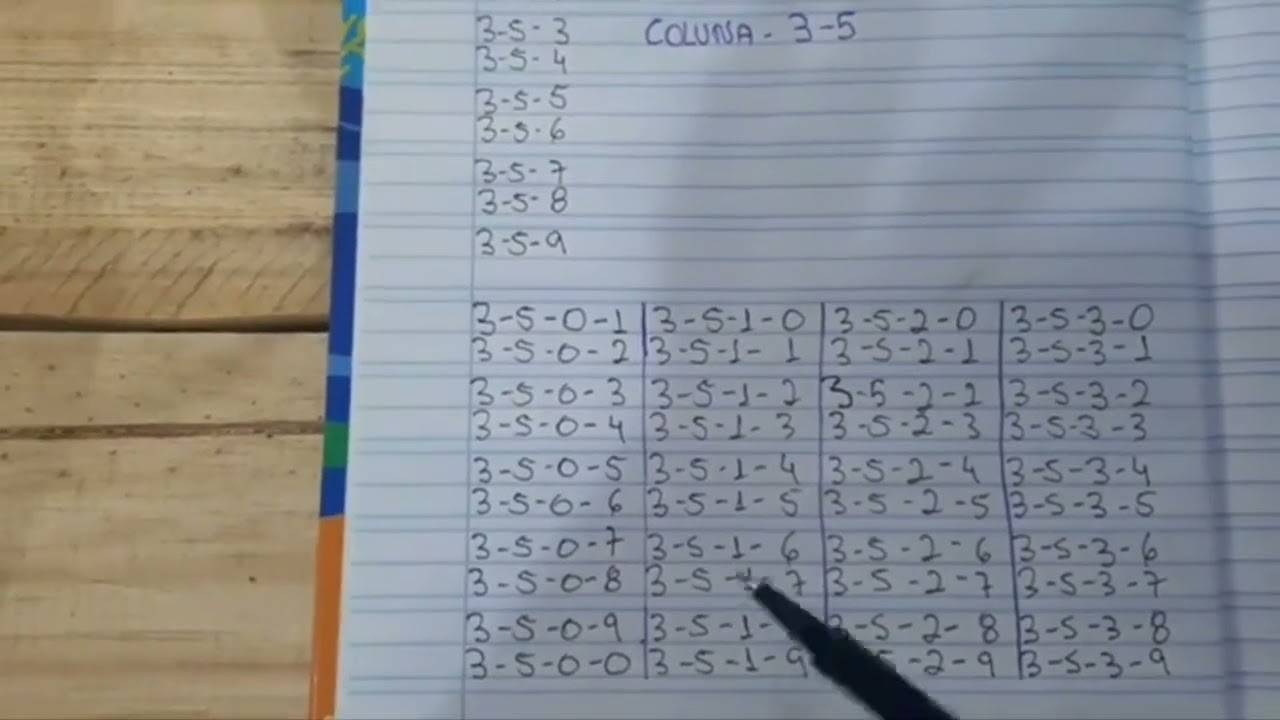 3-5-3 COLUNA - 3-5
3-5-4
3-5-5
3-5-6
3-5-7
3-5-8
3-5-9
3-5-0-1 3-5-1-0 3-5-2-0 3-5-3-0
3-5-0-2 3-5-1-1 3-5-2-1 3-5-3-1
3-5-0-3 3-5-1-2 3-5-2-2 3-5-3-2
3-5-0-4 3-5-1-3 3-5-2-3 3-5-3-3
3-5-0-5 3-5-1-4 3-5-2-4 3-5-3-4
3-5-0-6 3-5-1-5 3-5-2-5 3-5-3-5
3-5-0-7 3-5-1-6 3-5-2-6 3-5-3-6
3-5-0-8 3-5-1-7 3-5-2-7 3-5-3-7
3-5-0-9 3-5-1- 3-5-2-8 3-5-3-8
3-5-0-0 3-5-1-9 5-2-9 3-5-3-9